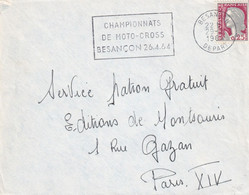 CHAMPIONNATS
DE MOTO-CROSS
BESANÇON 26.4.64
BESANÇON
DEPART
Service Nation Gratuit
Editions de Montsouris
1 Rue Gazan
Paris. XIV